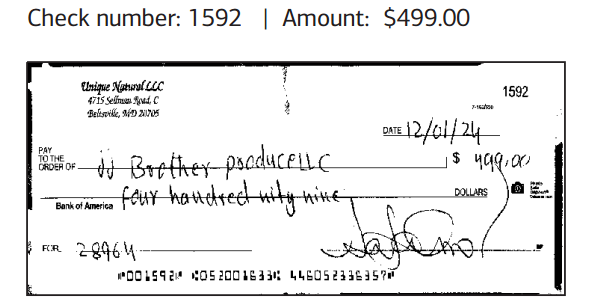 Check number: 1592 | Amount: $499.00
Unique Natural LLC
4715 Sellman Road, C
Beltsville, MD 20705
1592
DATE 12/01/24
PAY
TO THE
ORDER OF jj Brother produce LLC $ 499.00
four handred nity nine DOLLARS
Bank of America
FOR 28964
⑈001592⑈ ⑆052001633⑆ 446052336357⑈